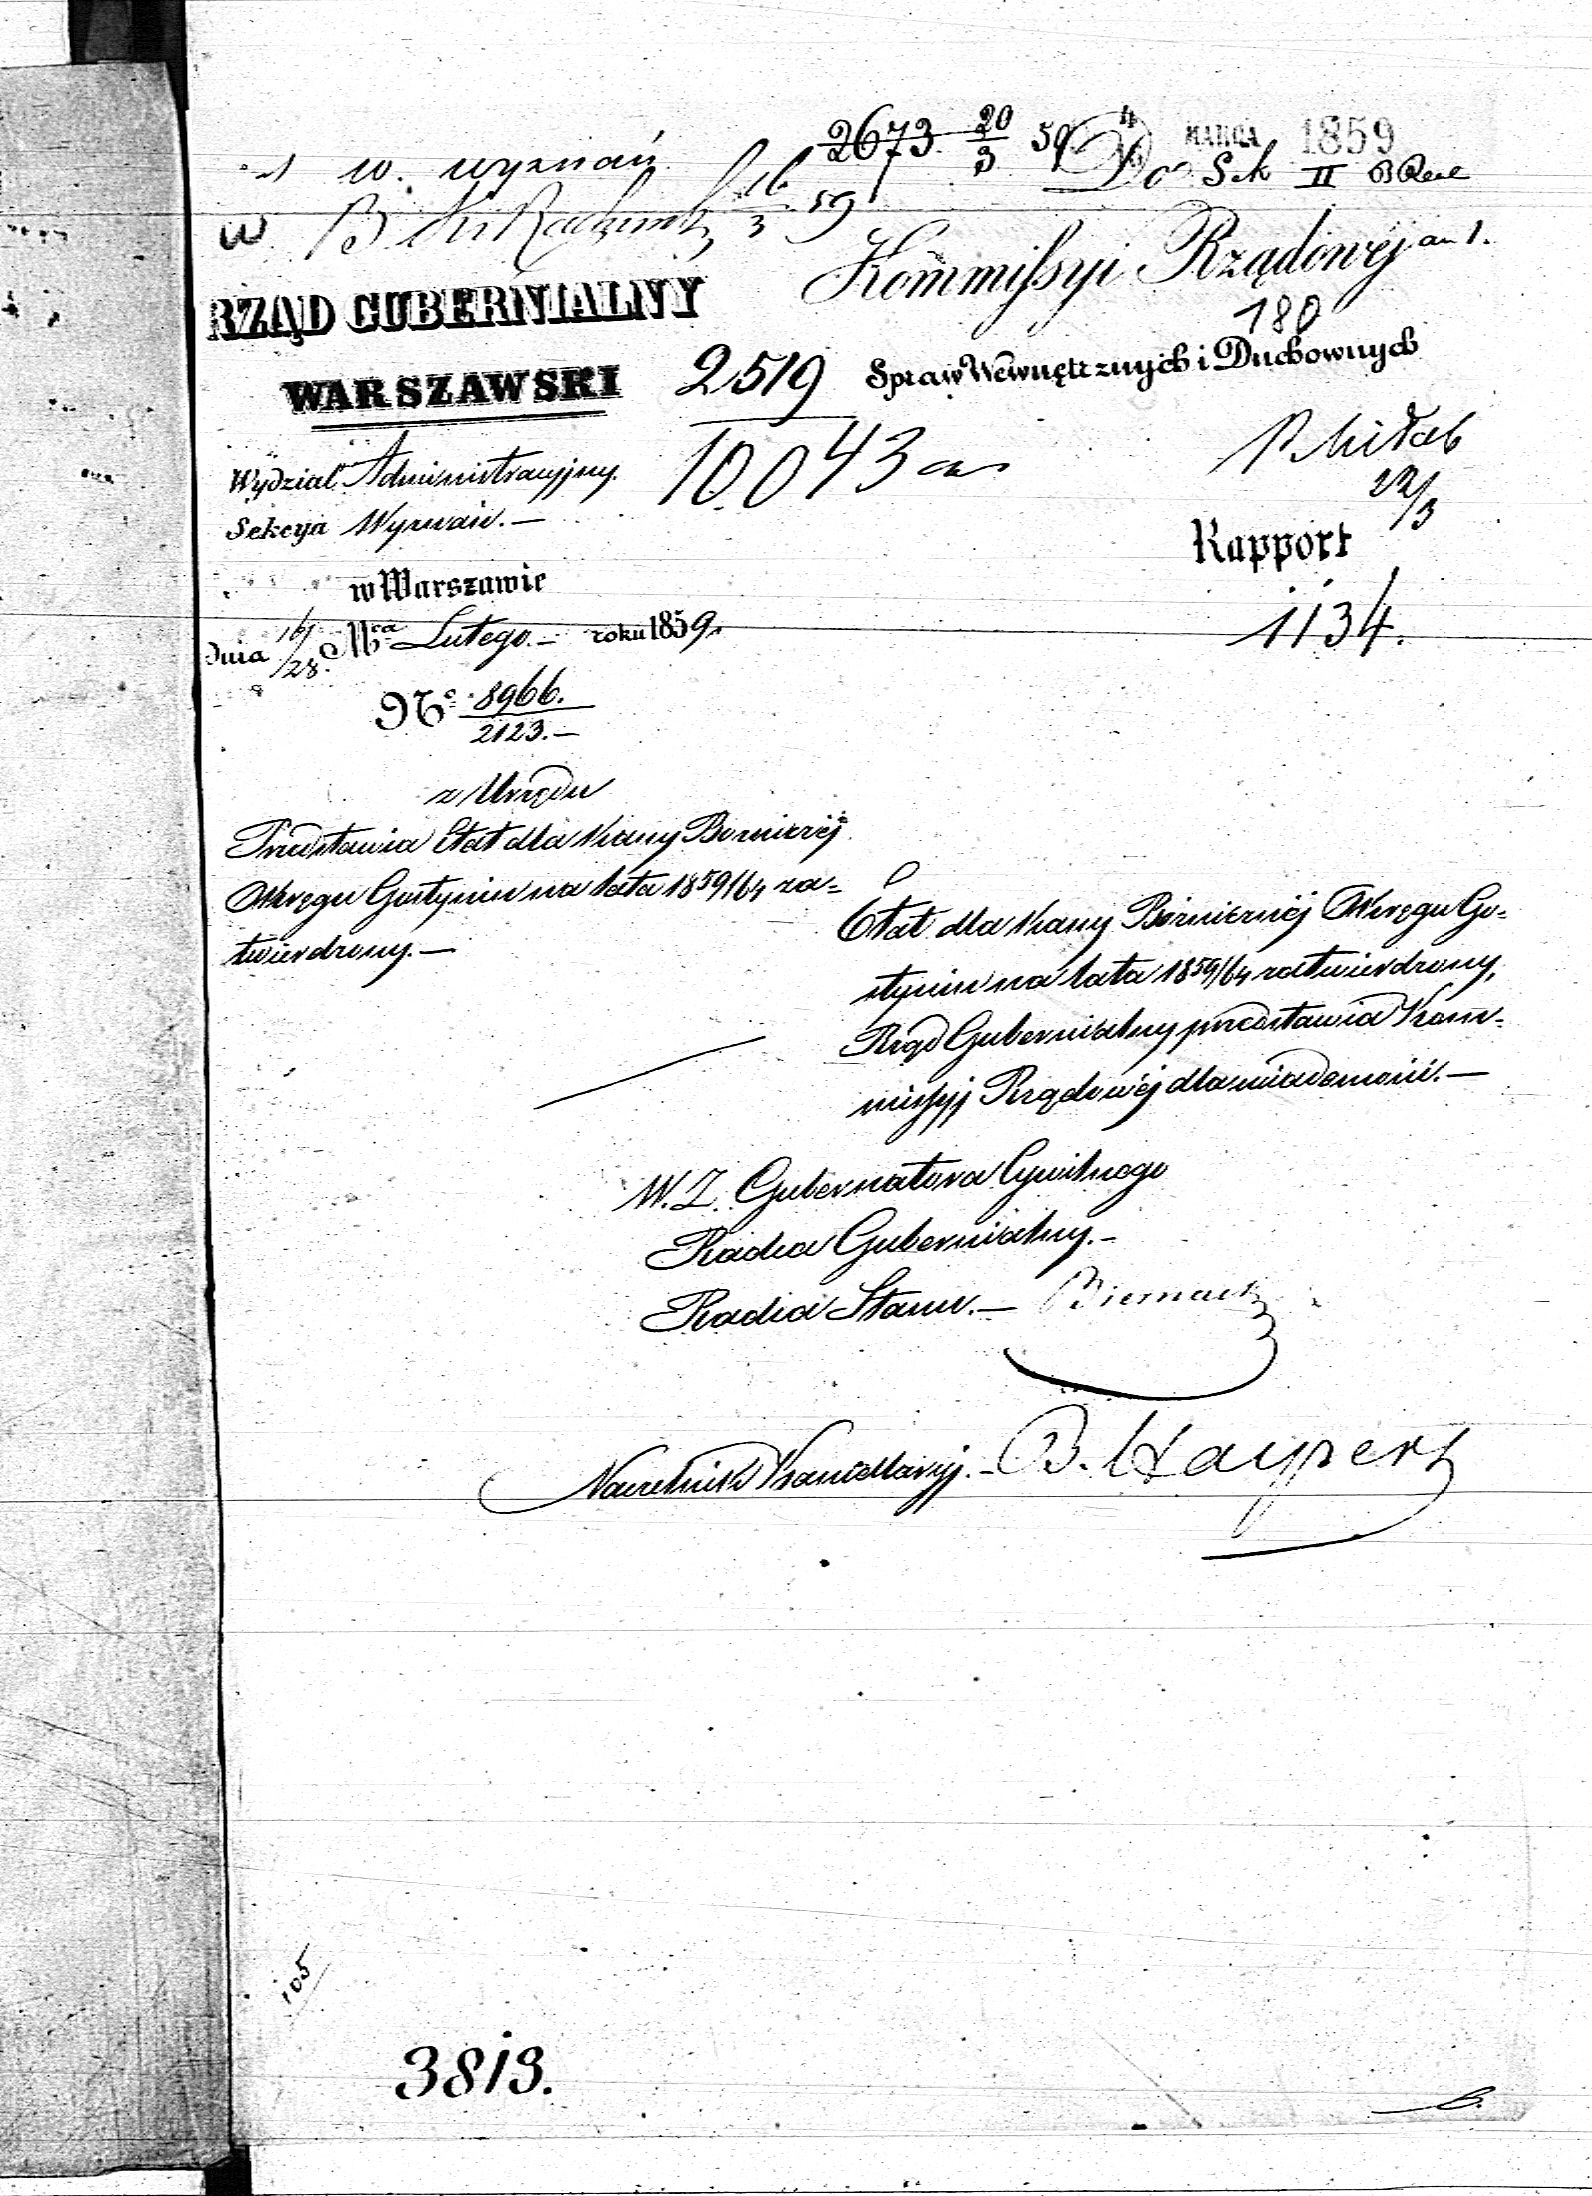 w. wyznań
2673 20/3 59
4 MARCA 1859
Do Sek II
16/3 59
RZĄD GUBERNIALNY
WARSZAWSKI
Kommissyi Rządowéj
180
Spraw Wewnętrznych i Duchownych
2519
10043
22/3
Wydział Administracyjny.
Sekcya Wyznań. —
Rapport
1134.
w Warszawie
dnia 16/28 Lutego. — roku 1859.
No 8966.
2123. —
z Urzędu
Przedstawia Etat dla Kassy Bożniczéj
Okręgu Gostynin na lata 1859/64 za=
twierdzony. —
Etat dla Kassy Bóżniczéj Okręgu Go=
stynin na lata 1859/64 zatwierdzony,
Rząd Gubernialny przedstawia Kom=
missyj Rządowéj dla wiadomości. —
W. Z. Gubernatora Cywilnego
Radca Gubernialny. —
Radca Stanu. — Biernacki
Naczelnik Kancellaryj. — B. Haypert
105
3813.